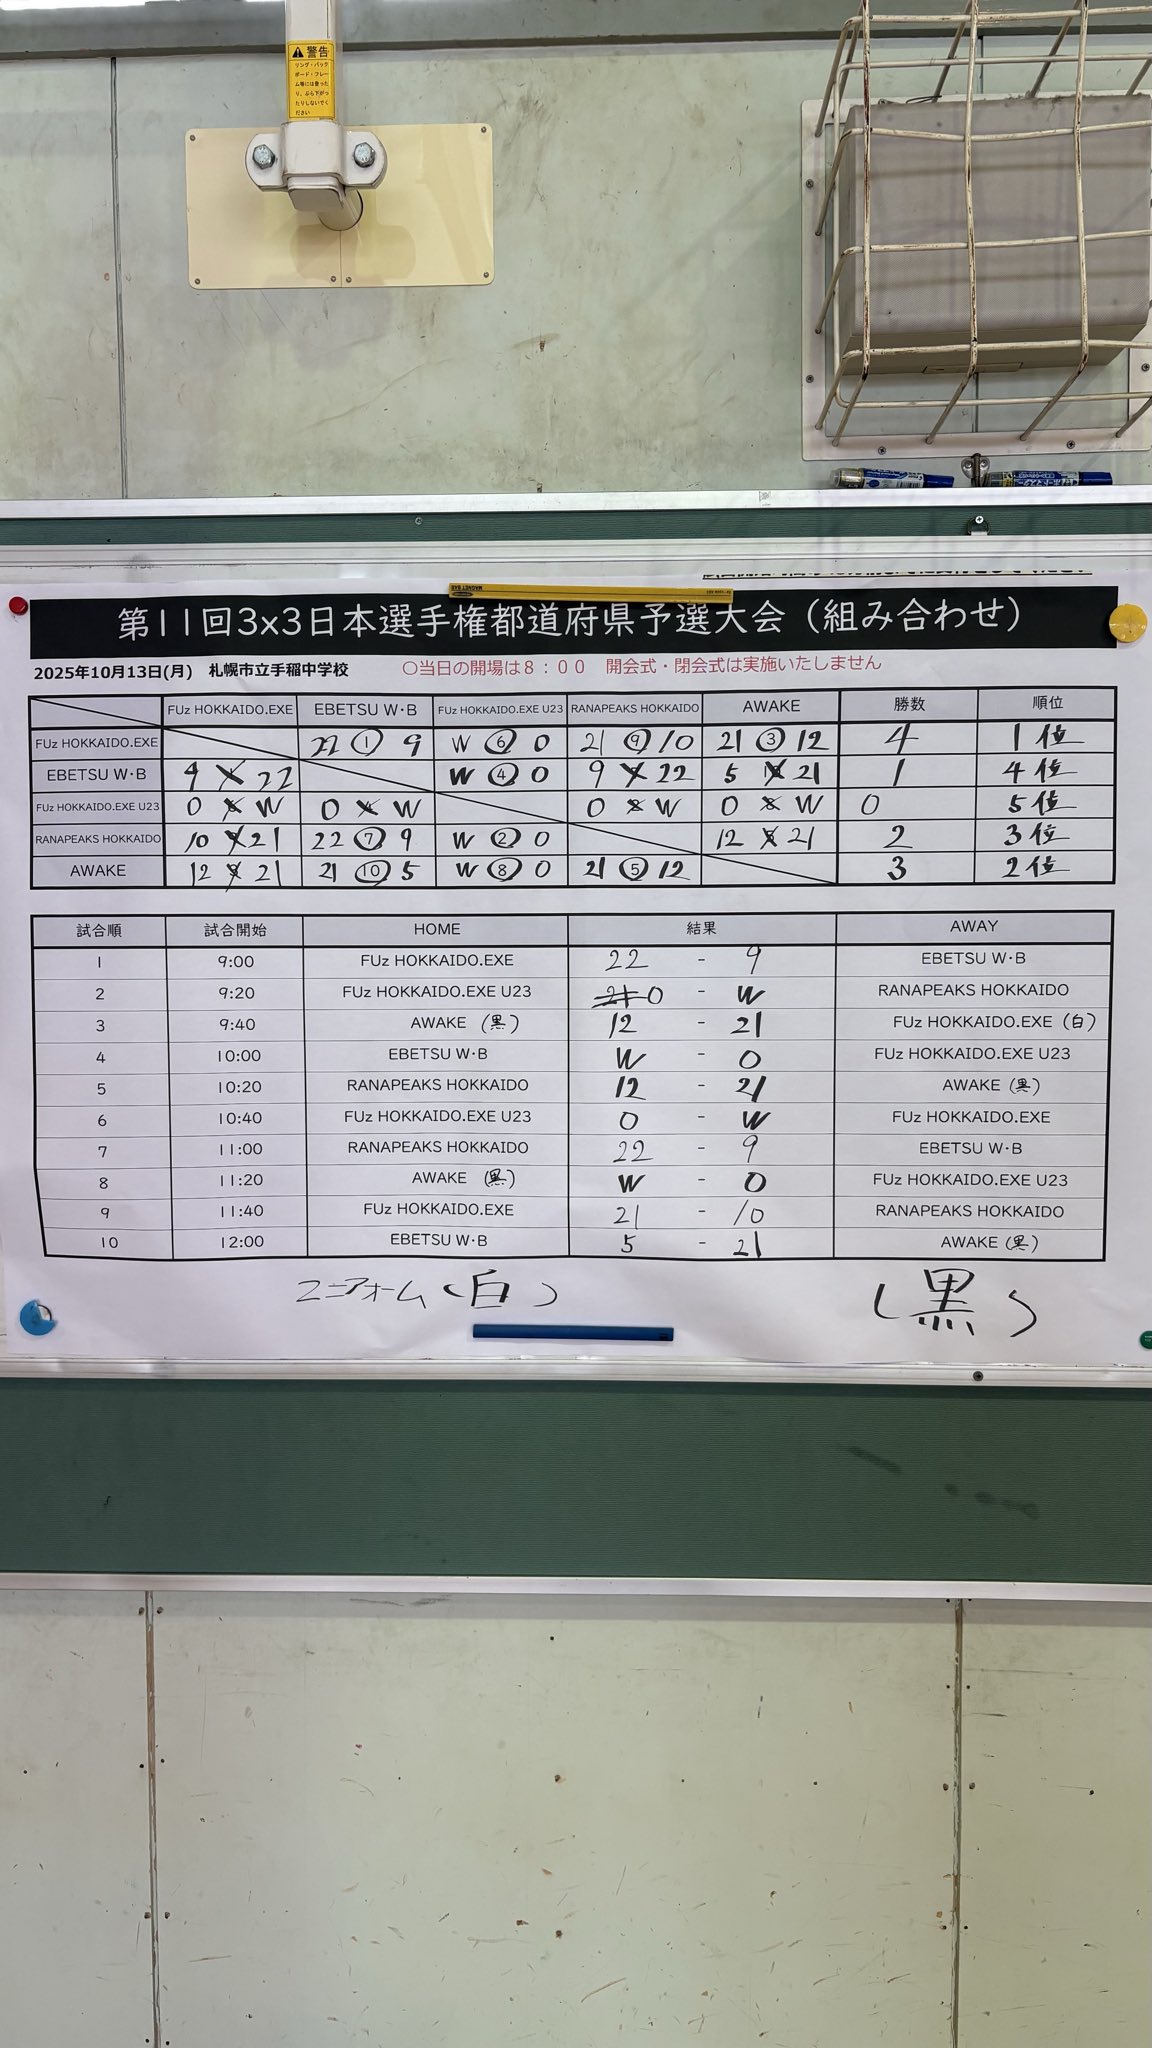 警告
リング・バック
ボード・フレー
ム等には登った
り、ぶら下がっ
たりしないでく
ださい
MAGNET BAR
第11回3x3日本選手権都道府県予選大会（組み合わせ）
2025年10月13日(月) 札幌市立手稲中学校 ○当日の開場は８：００ 開会式・閉会式は実施いたしません
FUz HOKKAIDO.EXE EBETSU W・B FUz HOKKAIDO.EXE U23 RANAPEAKS HOKKAIDO AWAKE 勝数 順位
FUz HOKKAIDO.EXE 22 ① 9 W ⑥ 0 21 ⑨ 10 21 ③ 12 4 1位
EBETSU W・B 9 22 W ④ 0 9 22 5 21 1 4位
FUz HOKKAIDO.EXE U23 0 W 0 W 0 W 0 W 0 5位
RANAPEAKS HOKKAIDO 10 21 22 ⑦ 9 W ② 0 12 21 2 3位
AWAKE 12 21 21 ⑩ 5 W ⑧ 0 21 ⑤ 12 3 2位
試合順 試合開始 HOME 結果 AWAY
1 9:00 FUz HOKKAIDO.EXE 22 - 9 EBETSU W・B
2 9:20 FUz HOKKAIDO.EXE U23 0 - W RANAPEAKS HOKKAIDO
3 9:40 AWAKE (黒) 12 - 21 FUz HOKKAIDO.EXE (白)
4 10:00 EBETSU W・B W - 0 FUz HOKKAIDO.EXE U23
5 10:20 RANAPEAKS HOKKAIDO 12 - 21 AWAKE (黒)
6 10:40 FUz HOKKAIDO.EXE U23 0 - W FUz HOKKAIDO.EXE
7 11:00 RANAPEAKS HOKKAIDO 22 - 9 EBETSU W・B
8 11:20 AWAKE (黒) W - 0 FUz HOKKAIDO.EXE U23
9 11:40 FUz HOKKAIDO.EXE 21 - 10 RANAPEAKS HOKKAIDO
10 12:00 EBETSU W・B 5 - 21 AWAKE (黒)
ユニフォーム (白) (黒)